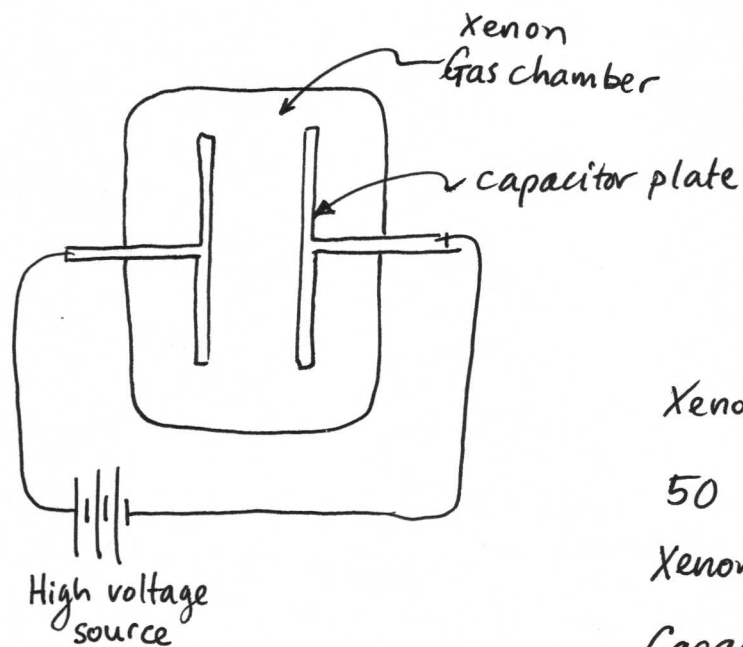 Xenon
Gas chamber
capacitor plate
+
High voltage
source
50
Xenon